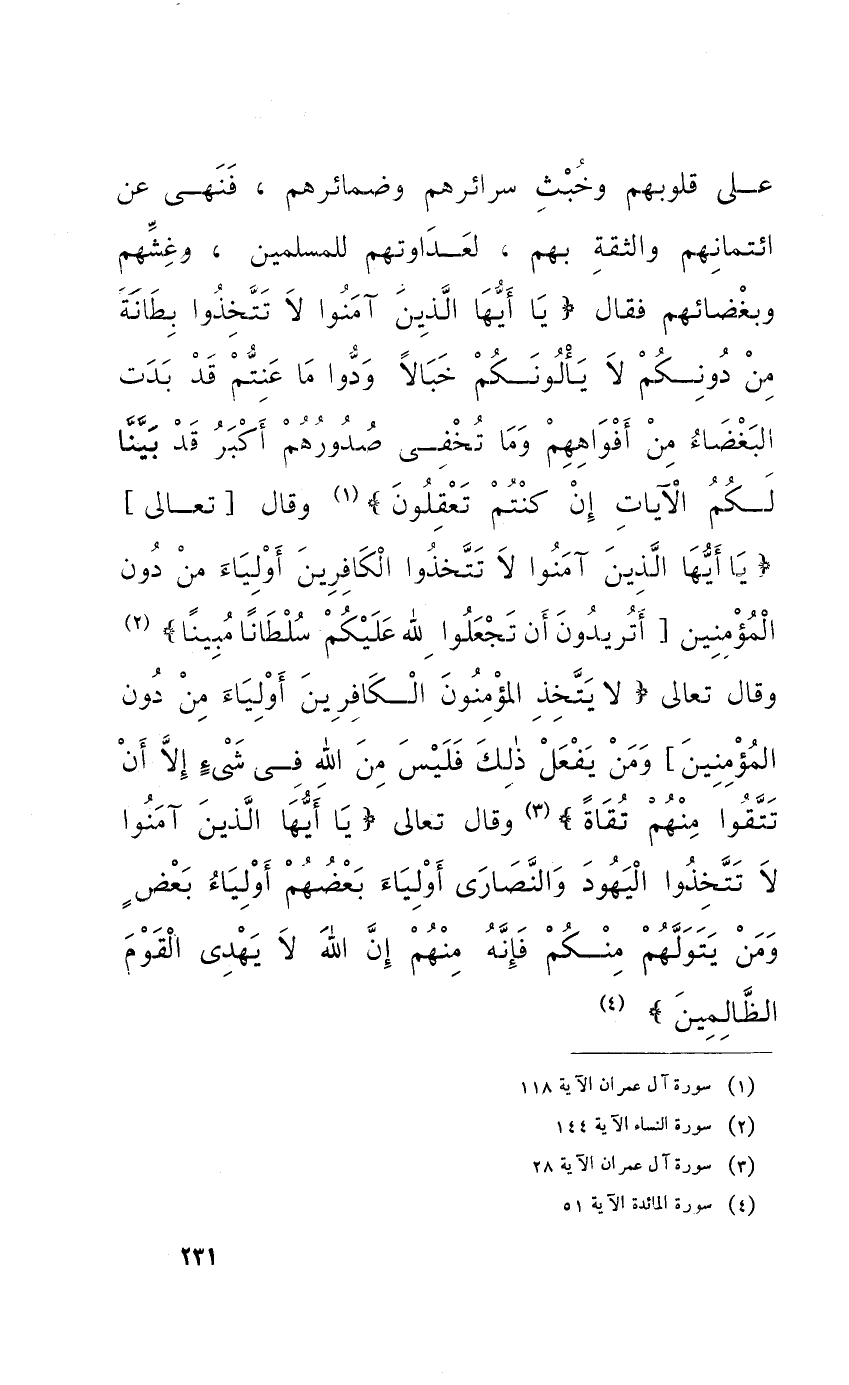 عـلى قلوبهم وخُبْثِ سرائرهم وضمائرهم ، فَنَهـى عن
ائتمانِهم والثقةِ بهم ، لعَـدَاوتهم للمسلمين ، وغِشِّهم
وبغْضائهم فقال ﴿ يَا أَيُّهَا الَّذِينَ آمَنُوا لاَ تَتَّخِذُوا بِطَانَةً
مِنْ دُونِـكُمْ لاَ يَأْلُونَـكُمْ خَبَالاً وَدُّوا مَا عَنِتُّمْ قَدْ بَدَت
البَغْضَاءُ مِنْ أَفْوَاهِهِمْ وَمَا تُخْفِـى صُدُورُهُمْ أَكْبَرُ قَدْ بَيَّنَّا
لَـكُمُ الْآيَاتِ إِنْ كُنْتُمْ تَعْقِلُونَ ﴾ (١) وقال [ تعـالى ]
﴿ يَا أَيُّهَا الَّذِينَ آمَنُوا لاَ تَتَّخِذُوا الْكَافِرِينَ أَوْلِيَاءَ مِنْ دُون
الْمُؤْمِنِين [ أَتُرِيدُونَ أَن تَجْعَلُوا لِلهِ عَلَيْكُمْ سُلْطَانًا مُبِينًا ﴾ (٢)
وقال تعالى ﴿ لا يَتَّخِذِ المُؤْمِنُونَ الْـكَافِرِينَ أَوْلِيَاءَ مِنْ دُون
المُؤْمِنِينَ ] وَمَنْ يَفْعَلْ ذٰلِكَ فَلَيْسَ مِنَ اللهِ فِـى شَىْءٍ إِلاَّ أَنْ
تَتَّقُوا مِنْهُمْ تُقَاةً ﴾ (٣) وقال تعالى ﴿ يَا أَيُّهَا الَّذِينَ آمَنُوا
لاَ تَتَّخِذُوا الْيَهُودَ وَالنَّصَارَى أَوْلِيَاءَ بَعْضُهُمْ أَوْلِيَاءُ بَعْضٍ
وَمَنْ يَتَوَلَّهُمْ مِنْـكُمْ فَإِنَّهُ مِنْهُمْ إِنَّ اللهَ لاَ يَهْدِى الْقَوْمَ
الظَّالِمِينَ ﴾ (٤)
(١) سورة آل عمران الآية ١١٨
(٢) سورة النساء الآية ١٤٤
(٣) سورة آل عمران الآية ٢٨
(٤) سورة المائدة الآية ٥١
٢٣١